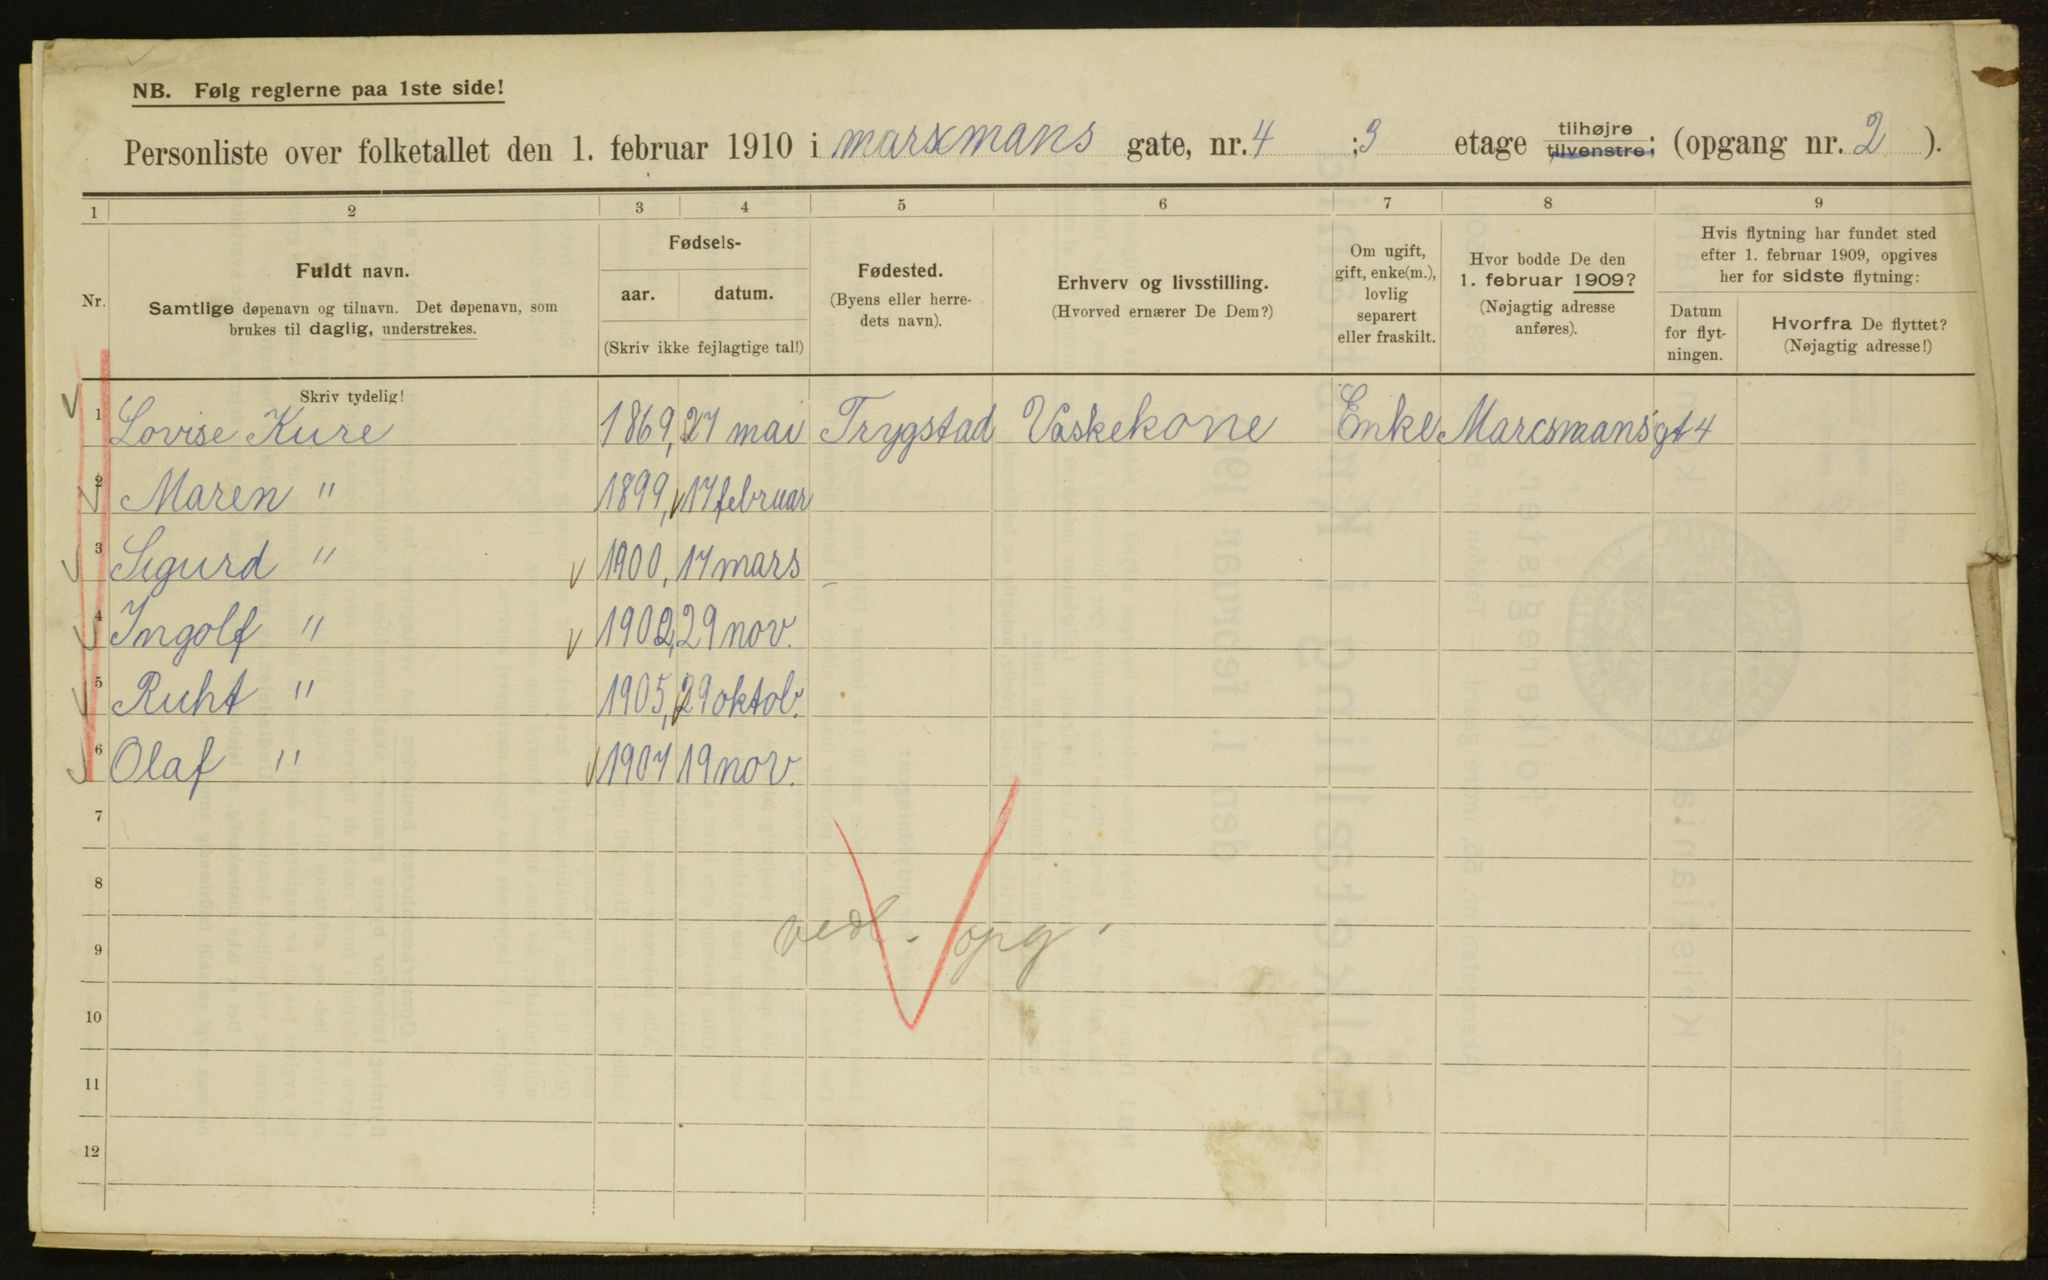 NB. Følg reglerne paa 1ste side!
Personliste over folketallet den 1. februar 1910 i marxmans gate, nr. 4 ; 3 etage tilhøjre tilvenstre; (opgang nr. 2 ).
1 2 3 4 5 6 7 8 9
Nr.
Fuldt navn.
Samtlige døpenavn og tilnavn. Det døpenavn, som
brukes til daglig, understrekes.
Fødsels-
aar. datum.
(Skriv ikke fejlagtige tal!)
Fødested.
(Byens eller herre-
dets navn).
Erhverv og livsstilling.
(Hvorved ernærer De Dem?)
Om ugift,
gift, enke(m.),
lovlig
separert
eller fraskilt.
Hvor bodde De den
1. februar 1909?
(Nøjagtig adresse
anføres).
Hvis flytning har fundet sted
efter 1. februar 1909, opgives
her for sidste flytning:
Datum
for flyt-
ningen.
Hvorfra De flyttet?
(Nøjagtig adresse!)
Skriv tydelig!
1 Lovise Kure 1869, 27 mai Trygstad Vaskekone Enke Marcsmansgt 4
2 Maren " 1899, 17 februar
3 Sigurd " 1900, 17 mars
4 Ingolf " 1902, 29 nov.
5 Ruht " 1905, 29 oktob.
6 Olaf " 1907 19 nov.
7
8
9
opg.
10
11
12